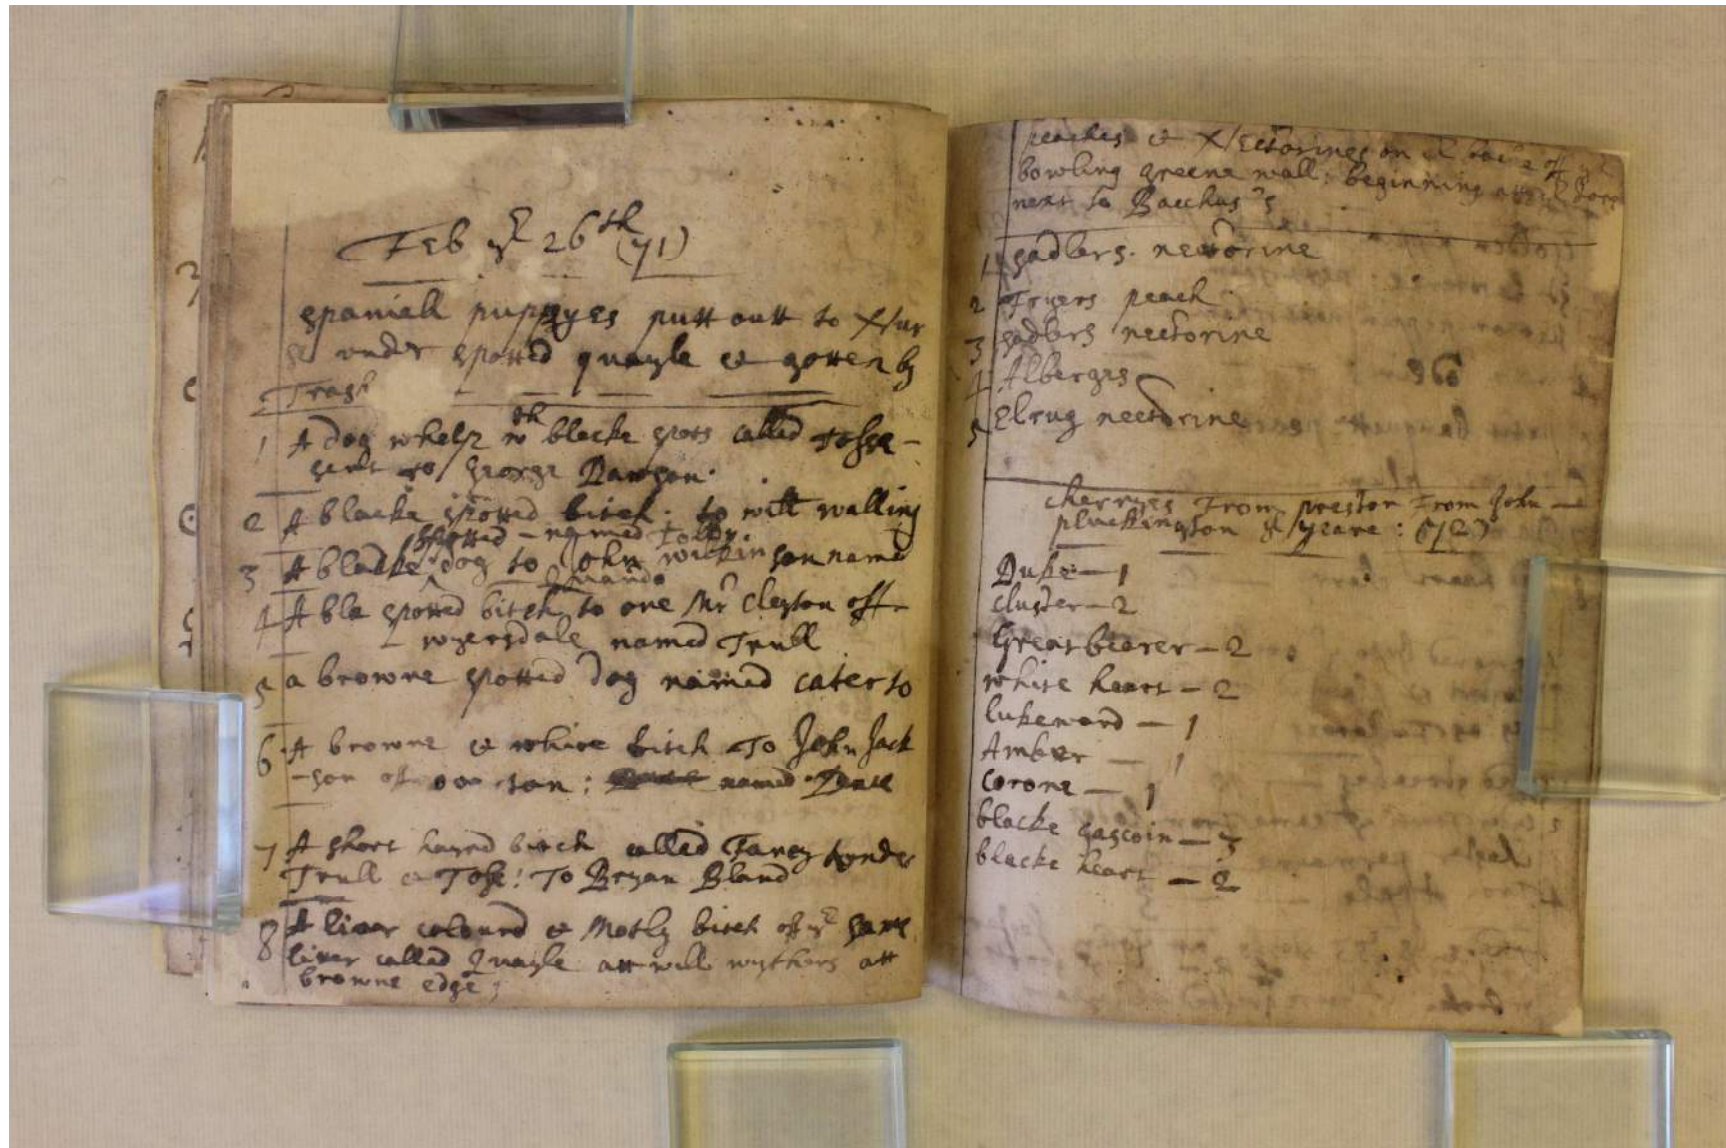 Feb ye 26th (71)
spaniell puppyes putt outt to
under spotted quayle & gotten by
Trash
1 A dog whelp wth blacke spots called Tosse -
sent to George Dawson.
2 A blacke spotted bitch. to will walling
spotted - named Tolly
3 A blacke dog to John wickin son name
Quando
4 A bla spotted bitch to one Mr Cleyton off -
- wyersdale named Trull
5 a browne spotted dog named cater to
6 A browne & white bitch To John Jack
-son off : named
7 A short hayrd bitch called Fancy under
Trull & Tosse! To Bryan Bland
8 A liver coloured & Motly bitch off ye same
litter called Quayle att will wythers att
browne edge;
peaches & Nectorines on ye backe off ye
bowling greene wall: beginning att ye dore
next to Bacchus's
1 sadlers. nectorine
2 Fryers peach
3 sadlers nectorine
4 Alberges
5 Elrug nectorine
cherryes From preston From John -
pluckington ye yeare: 67(2)
Duke - 1
cluster - 2
Great bearer - 2
white heart - 2
lukeward - 1
Amber - 1
Corone - 1
blacke gascoin - 3
blacke heart - 2